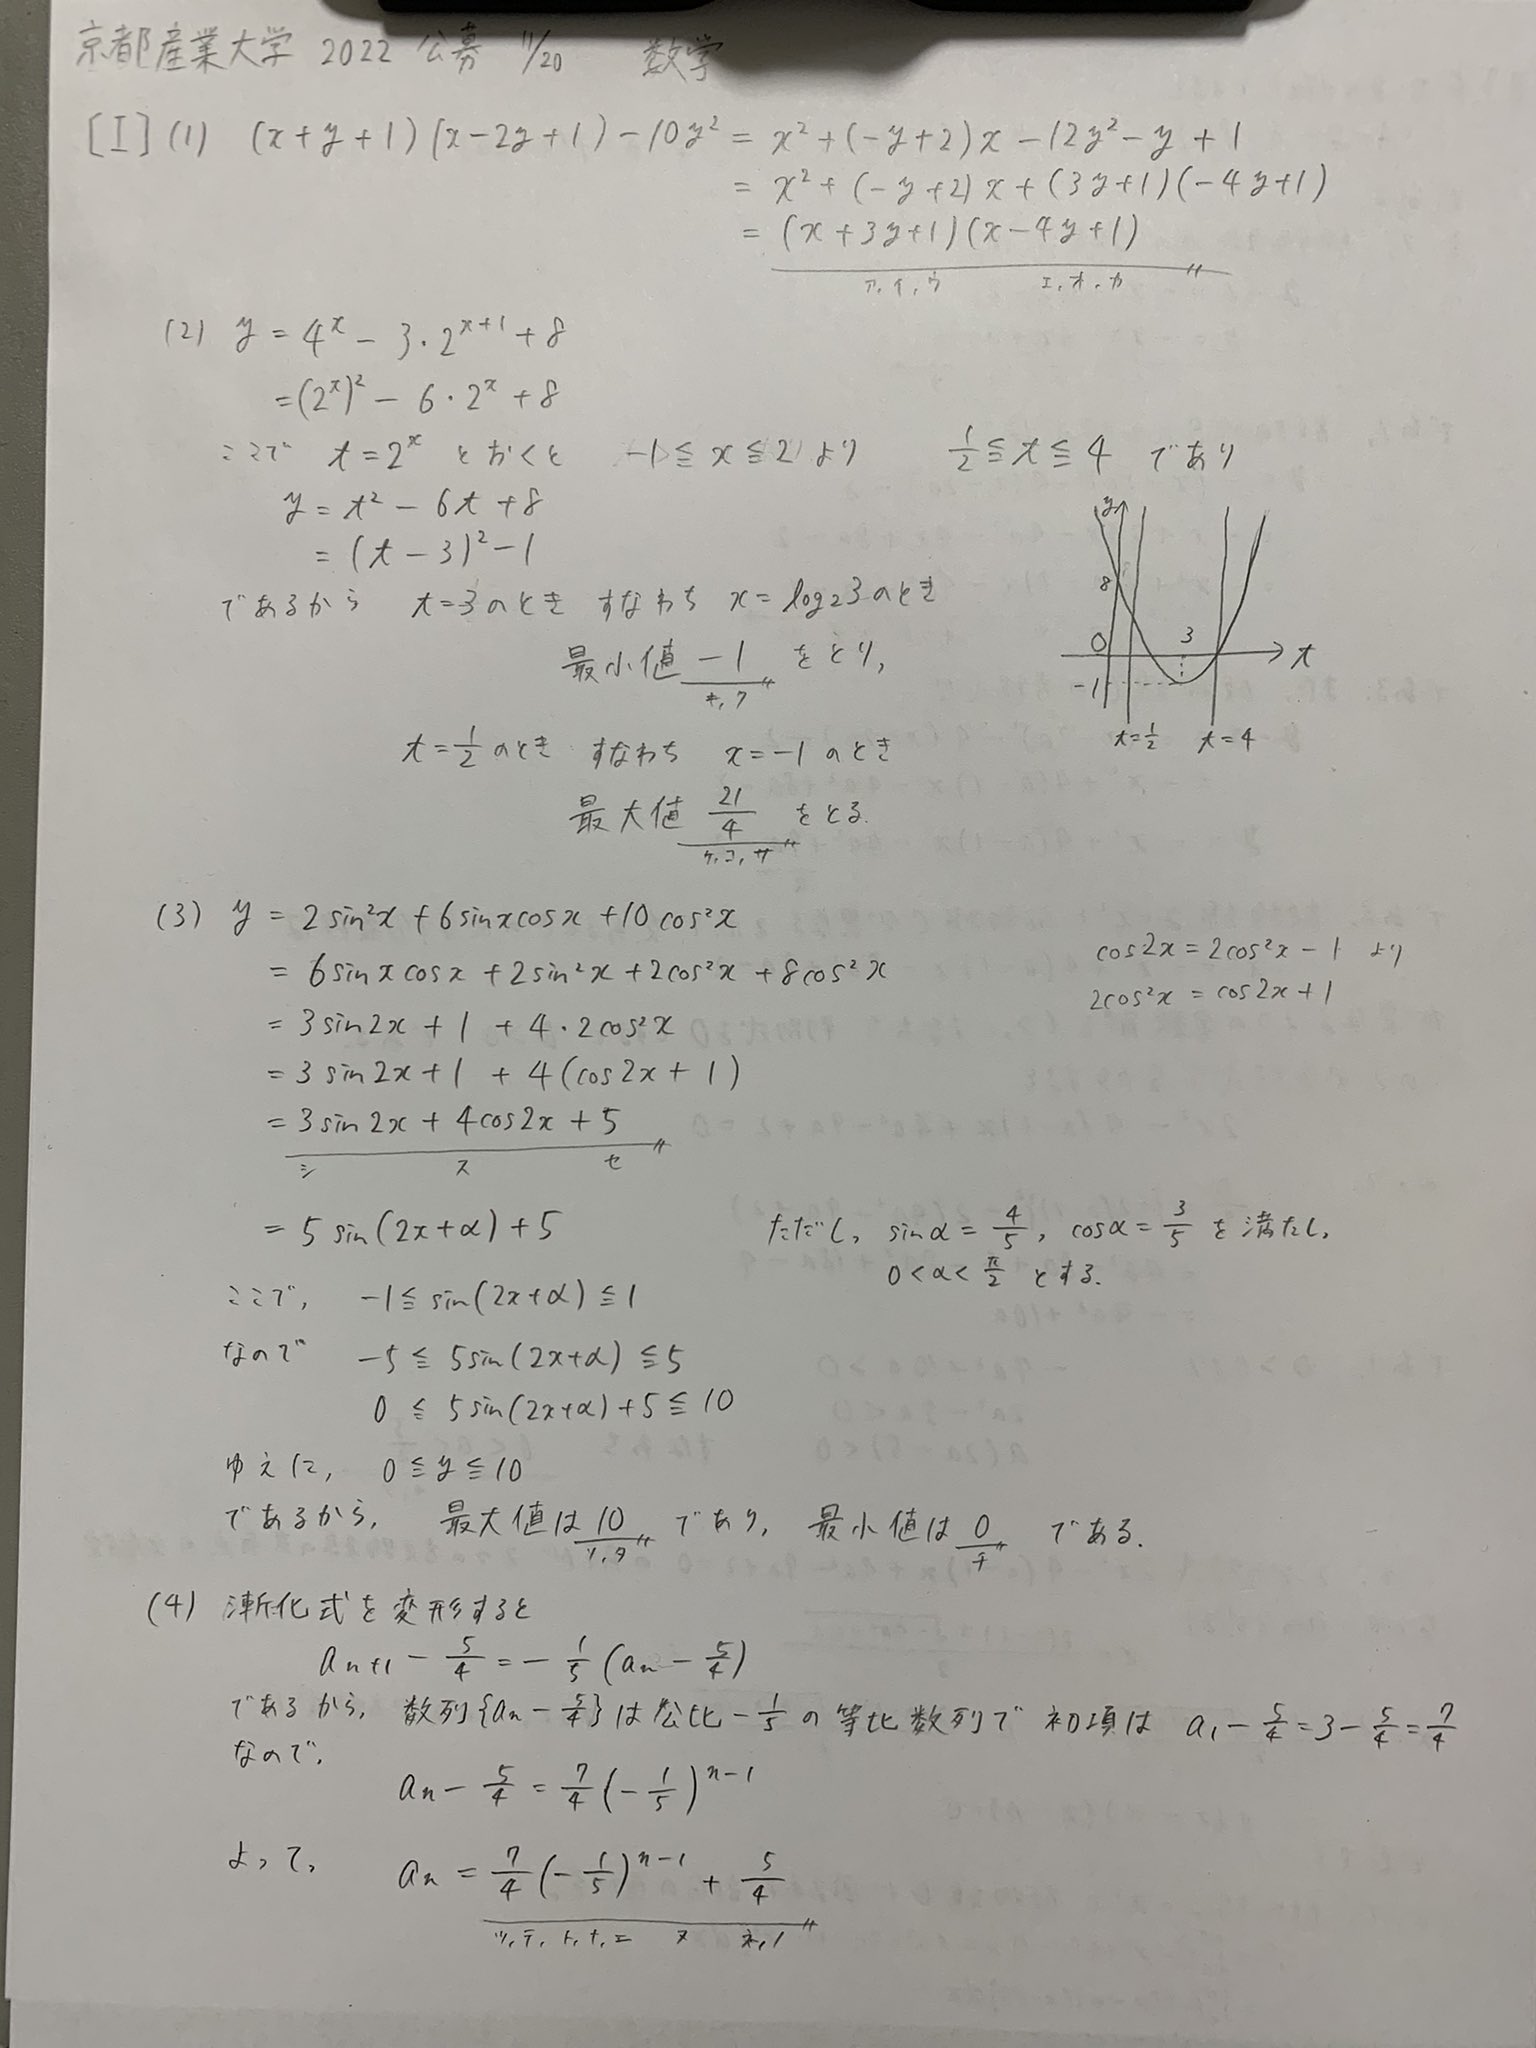 京都産業大学 2022 公募 11/20 数学
[I] (1) (x+y+1)(x-2y+1)-10y² = x²+(-y+2)x-12y²-y+1
= x²+(-y+2)x+(3y+1)(-4y+1)
= (x+3y+1)(x-4y+1)
ア,イ,ウ エ,オ,カ
(2) y = 4^x - 3・2^{x+1} + 8
= (2^x)² - 6・2^x + 8
ここで t=2^x とおくと -1≦x≦2 より 1/2≦t≦4 であり
y = t² - 6t + 8
= (t-3)² - 1
であるから t=3のとき すなわち x=log₂3のとき
最小値 -1 をとり,
キ,ク
t=1/2 のとき すなわち x=-1 のとき
最大値 21/4 をとる.
ケ,コ,サ
y
8
0
3
t
-1
t=1/2 t=4
(3) y = 2sin²x + 6sinxcosx + 10cos²x
= 6sinxcosx + 2sin²x + 2cos²x + 8cos²x
= 3sin2x + 1 + 4・2cos²x
= 3sin2x + 1 + 4(cos2x+1)
= 3sin2x + 4cos2x + 5
シ ス セ
cos2x = 2cos²x - 1 より
2cos²x = cos2x + 1
= 5sin(2x+α) + 5 ただし, sinα = 4/5, cosα = 3/5 を満たし,
0<α<π/2 とする.
ここで, -1≦sin(2x+α)≦1
なので -5≦5sin(2x+α)≦5
0≦5sin(2x+α)+5≦10
ゆえに, 0≦y≦10
であるから, 最大値は 10 であり, 最小値は 0 である.
ソ,タ チ
(4) 漸化式を変形すると
a_{n+1} - 5/4 = -1/5(a_n - 5/4)
であるから, 数列{a_n - 5/4}は公比 -1/5 の等比数列で 初項は a₁ - 5/4 = 3 - 5/4 = 7/4
なので,
a_n - 5/4 = 7/4(-1/5)^{n-1}
よって, a_n = 7/4(-1/5)^{n-1} + 5/4
ツ,テ,ト,ナ,ニ ヌ ネ,ノ